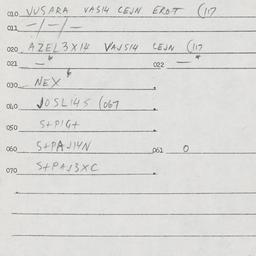 010 VUSARA VAS14 CEJN EROT (117
011 -/-/-
020 AZEL3X14 VAJS14 CEJN (117
021 — * 022 — *
030 NEX *
040 JOSL145 (067
050 S+PIG+
060 S+PAJ14N 061 0
070 S+PAJ3XC